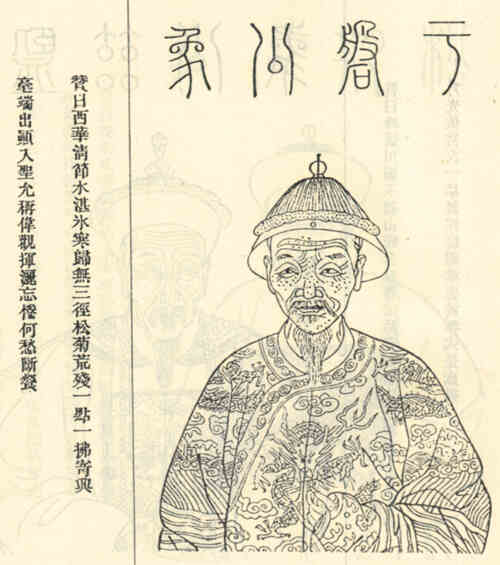 于磐公象
贊曰西華清節水湛氷寒歸無三徑松菊荒殘一點一拂寄興
毫端出顚入聖允稱偉觀揮灑忘倦何愁斷爨